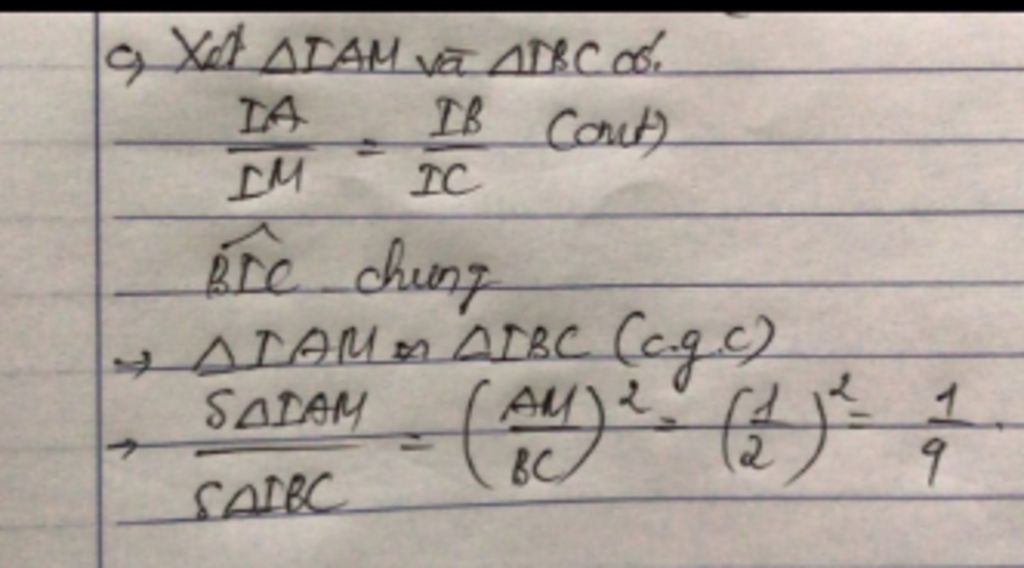 c, Xét ΔIAM và ΔIBC có.
IA/IM = IB/IC (cmt)
B̂IC chung
→ ΔIAM ∽ ΔIBC (c.g.c)
→ SΔIAM/SΔIBC = (AM/BC)² = (1/2)² = 1/9.